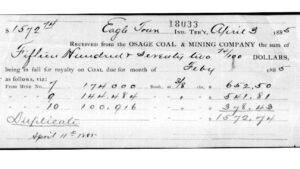 18033
$1572 74 Eagle Town IND. TER'Y, April 3 1885
RECEIVED FROM THE OSAGE COAL & MINING COMPANY the sum of
Fifteen Hundred & Seventy two 74/100 DOLLARS,
being in full for royalty on COAL due for month of Feby 1885
as follows, viz:
From MINE No. 7 174000 @ 3/8 652.50
" 9 144.484 " 541.81
" 10 100.916 " 378.43
Duplicate 1572.74
April 11th 1885